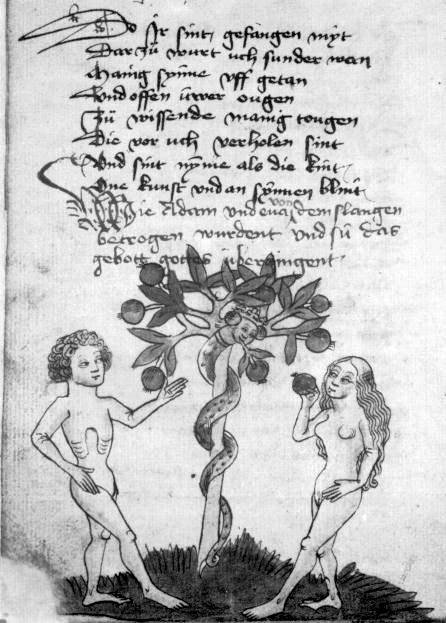 So ir sint gefangen nyt
Dar zů wurt uch sunder wan
Manig synne uff getan
Und offen uwer ougen
Zů wissende manig tougen
Die vor uch verholen sint
Und sint nyme als die kint
One kunst und an synnen blint
Wie Adam und eua von dem slangen
betrogen wurdent Und sü das
gebott gottes übergingent